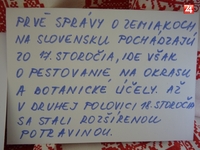 PRVÉ SPRÁVY O ZEMIAKOCH
NA SLOVENSKU POCHÁDZAJÚ
ZO 17. STOROČIA, IDE VŠAK
O PESTOVANIE NA OKRASU
A BOTANICKÉ ÚČELY. AŽ
V DRUHEJ POLOVICI 18. STOROČIA
SA STALI ROZŠÍRENOU
POTRAVINOU.